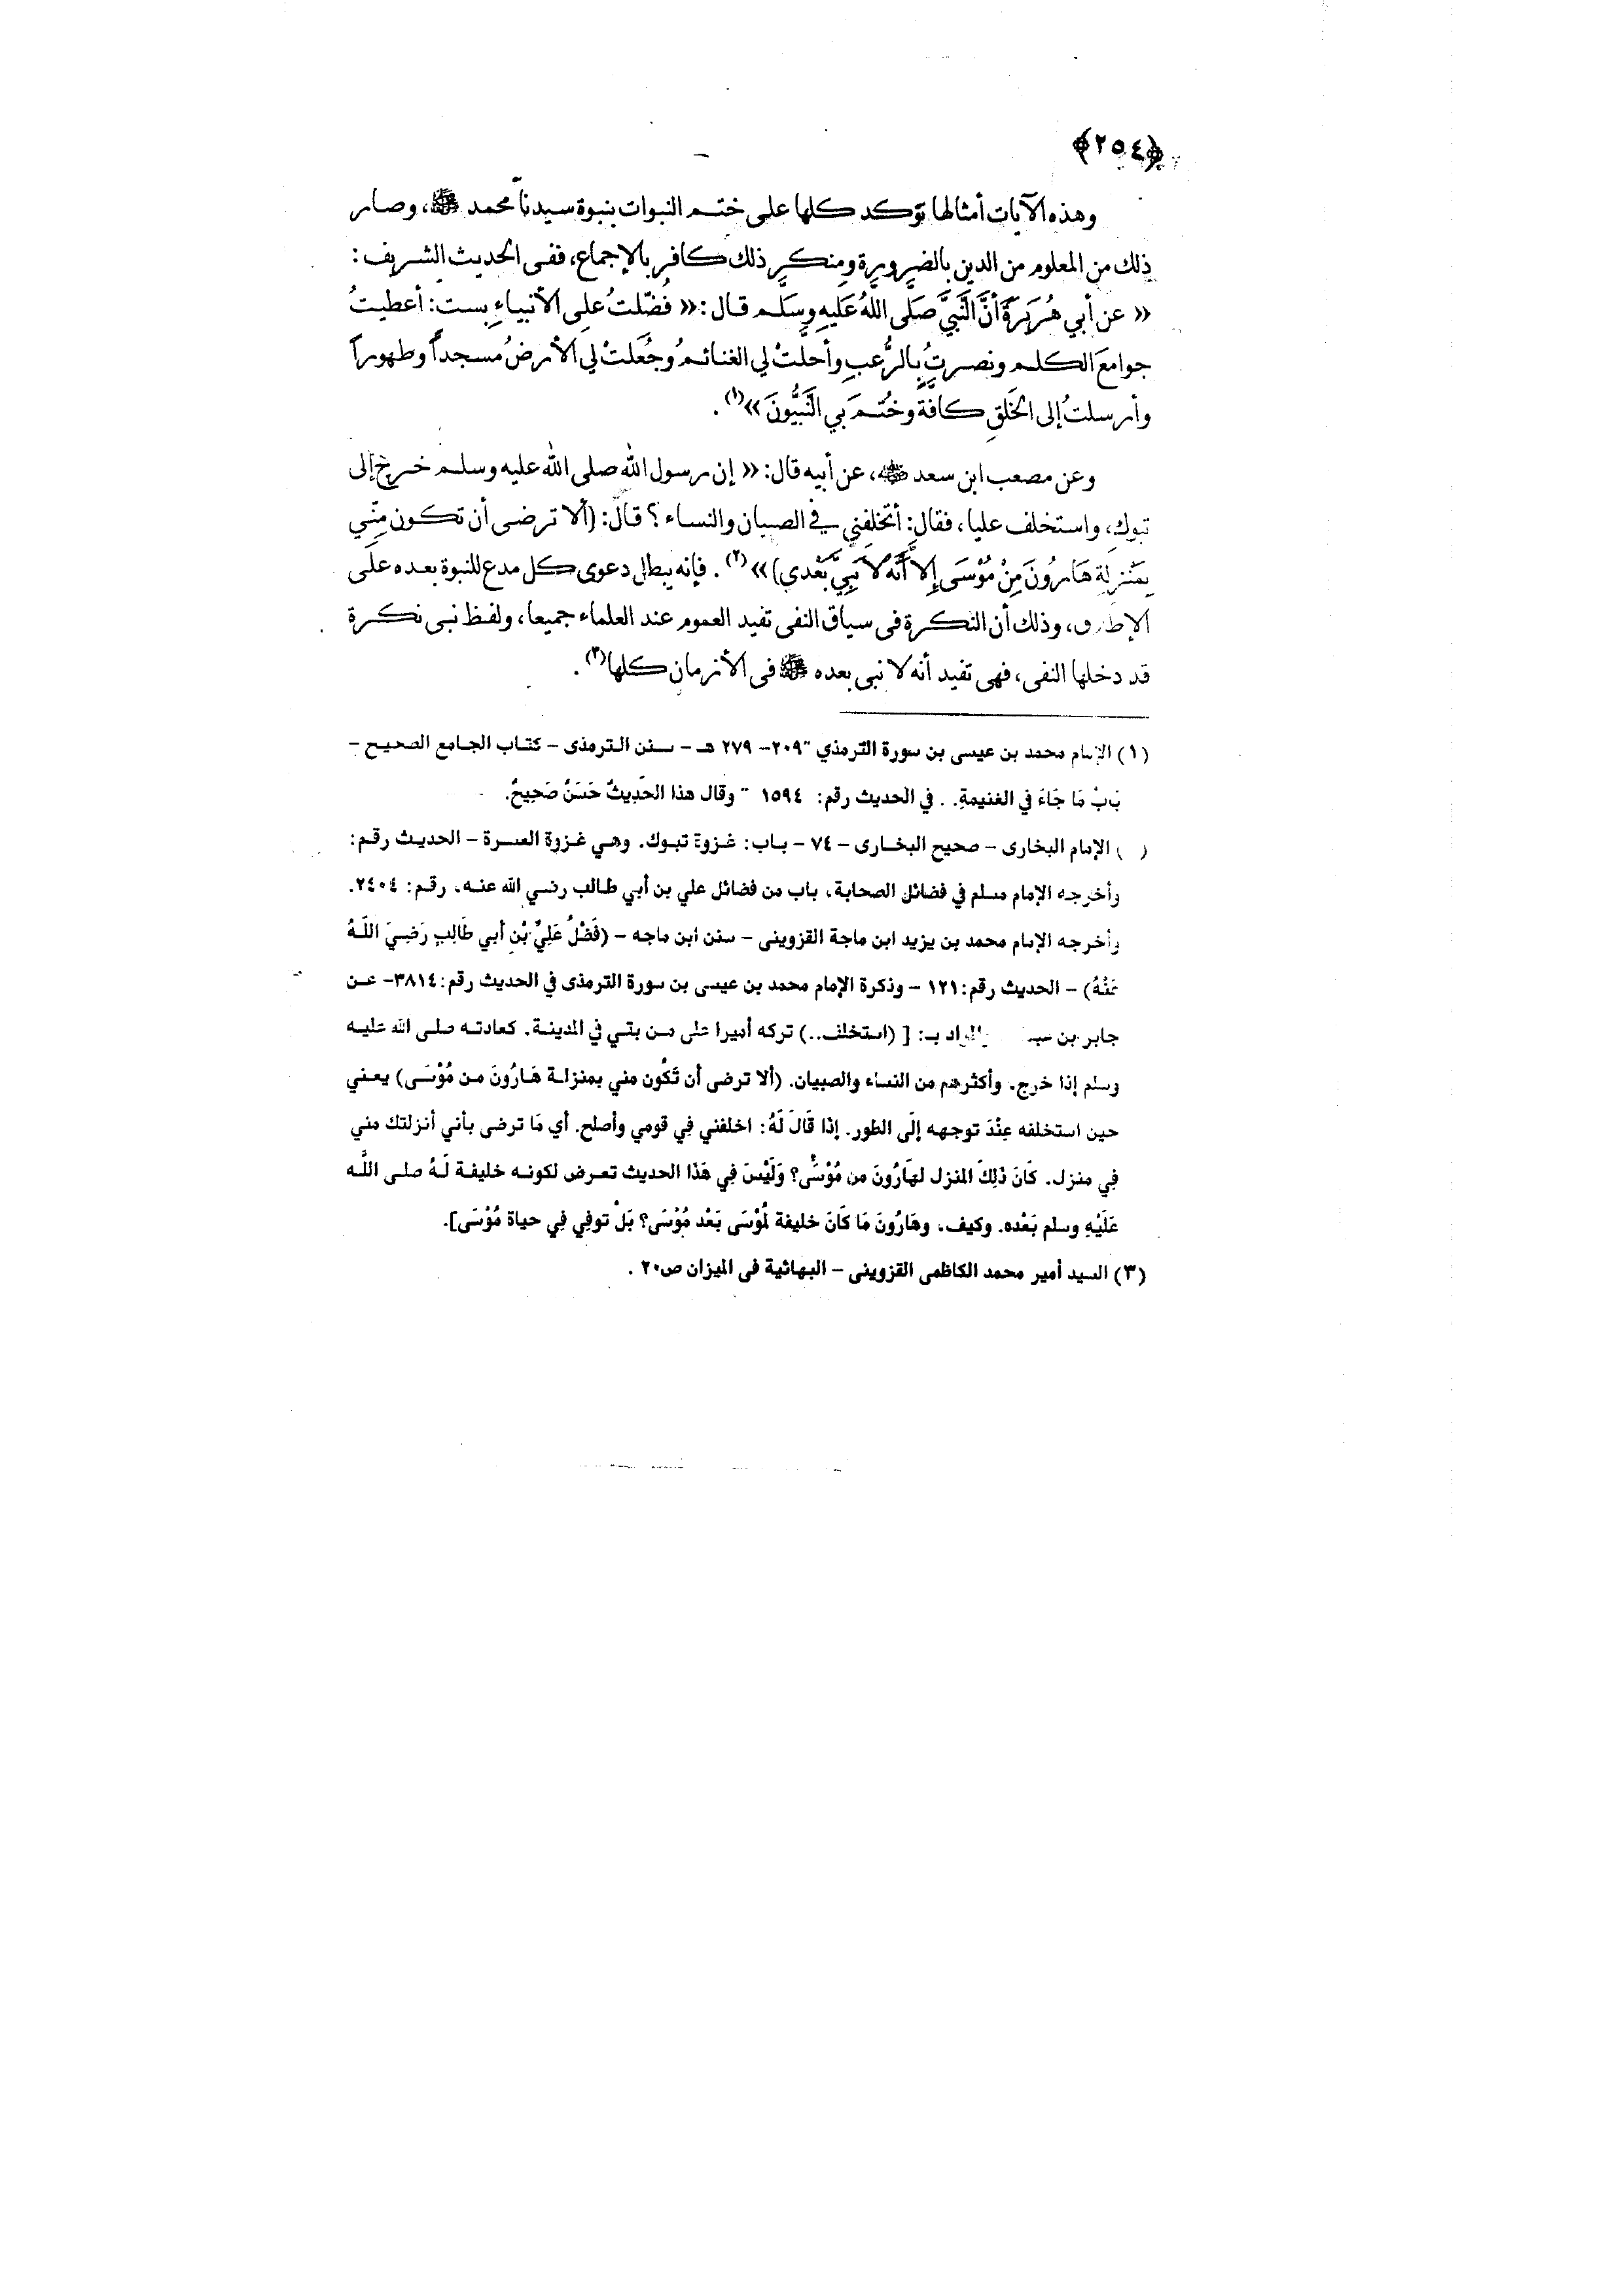 ﴿٢٥٤﴾
وهذه الآيات أمثالها تؤكد كلها على ختم النبوات بنبوة سيدنا محمد ﷺ، وصار
ذلك من المعلوم من الدين بالضرورة ومنكر ذلك كافر بالإجماع، ففى الحديث الشريف:
« عن أبي هُرَيرَةَ أنَّ النَّبيَّ صَلَّى اللَّهُ عَلَيهِ وسَلَّم قال: « فُضّلتُ على الأنبياءِ بست: أعطيتُ
جوامعَ الكلم ونصرتُ بالرُّعبِ وأحلّتْ لي الغنائمُ وجُعَلتْ لي الأرضُ مسجداً وطهوراً
وأرسلتُ إلى الخَلقِ كافَّةً وخُتمَ بي النَّبيُّونَ »(١).
وعن مصعب ابن سعد ﷺ، عن أبيه قال: « إن رسول الله صلى الله عليه وسلم خرج إلى
تبوك، واستخلف عليا، فقال: أتخلفني في الصبيان والنساء؟ قال: (ألا ترضى أن تكون مِنّي
بمَنْزلة هَارُونَ مِنْ مُوْسَى إلاَّ أَنَّه لاَ نَبِيَّ بَعْدي) »(٢). فإنه يبطل دعوى كل مدع للنبوة بعده على
الإطلاق، وذلك أن النكرة فى سياق النفى تفيد العموم عند العلماء جميعا، ولفظ نبى نكرة
قد دخلها النفى، فهى تفيد أنه لا نبى بعده ﷺ فى الأزمان كلها(٣).
(١) الإمام محمد بن عيسى بن سورة الترمذي "٢٠٩- ٢٧٩ هـ - سنن الترمذى - كتاب الجامع الصحيح -
بَابْ مَا جَاءَ في الغنيمةِ. . في الحديث رقم: ١٥٩٤ " وقال هذا الحَدِيثٌ حَسَنٌ صَحِيحٌ.
( ) الإمام البخارى - صحيح البخارى - ٧٤ - باب: غزوة تبوك. وهي غزوة العسرة - الحديث رقم:
وأخرجه الإمام مسلم في فضائل الصحابة، باب من فضائل علي بن أبي طالب رضي الله عنه، رقم: ٢٤٠٤.
وأخرجه الإمام محمد بن يزيد ابن ماجة القزوينى - سنن ابن ماجه - (فَضْلُ عَلِيٌ بْنِ أبي طَالِبٍ رَضِيَ اللَّهُ
عَنْهُ) - الحديث رقم: ١٢١ - وذكرة الإمام محمد بن عيسى بن سورة الترمذى في الحديث رقم: ٣٨١٤- عن
جابر بن والمراد بـ: [ (استخلف..) تركه أميرا على من بقي في المدينة. كعادته صلى الله عليه
وسلم إذا خرج، وأكثرهم من النساء والصبيان. (ألا ترضى أن تَكُون مني بمنزلة هَارُونَ من مُوْسَى) يعني
حين استخلفه عِنْدَ توجهه إلَى الطور. إذا قَالَ لَهُ: اخلفني فِي قومي وأصلح. أي مَا ترضى بأني أنزلتك مني
فِي منزل. كَانَ ذَلِكَ المنزل لهَارُونَ من مُوْسَى؟ وَلَيْسَ فِي هَذَا الحديث تعرض لكونه خليفة لَهُ صلى اللَّه
عَلَيْهِ وسلم بَعْده. وكيف، وهَارُونَ مَا كَانَ خليفة لُمُوْسَى بَعْد مُوْسَى؟ بَلْ توفي فِي حياة مُوْسَى].
(٣) السيد أمير محمد الكاظمى القزوينى - البهائية فى الميزان ص٢٠ .